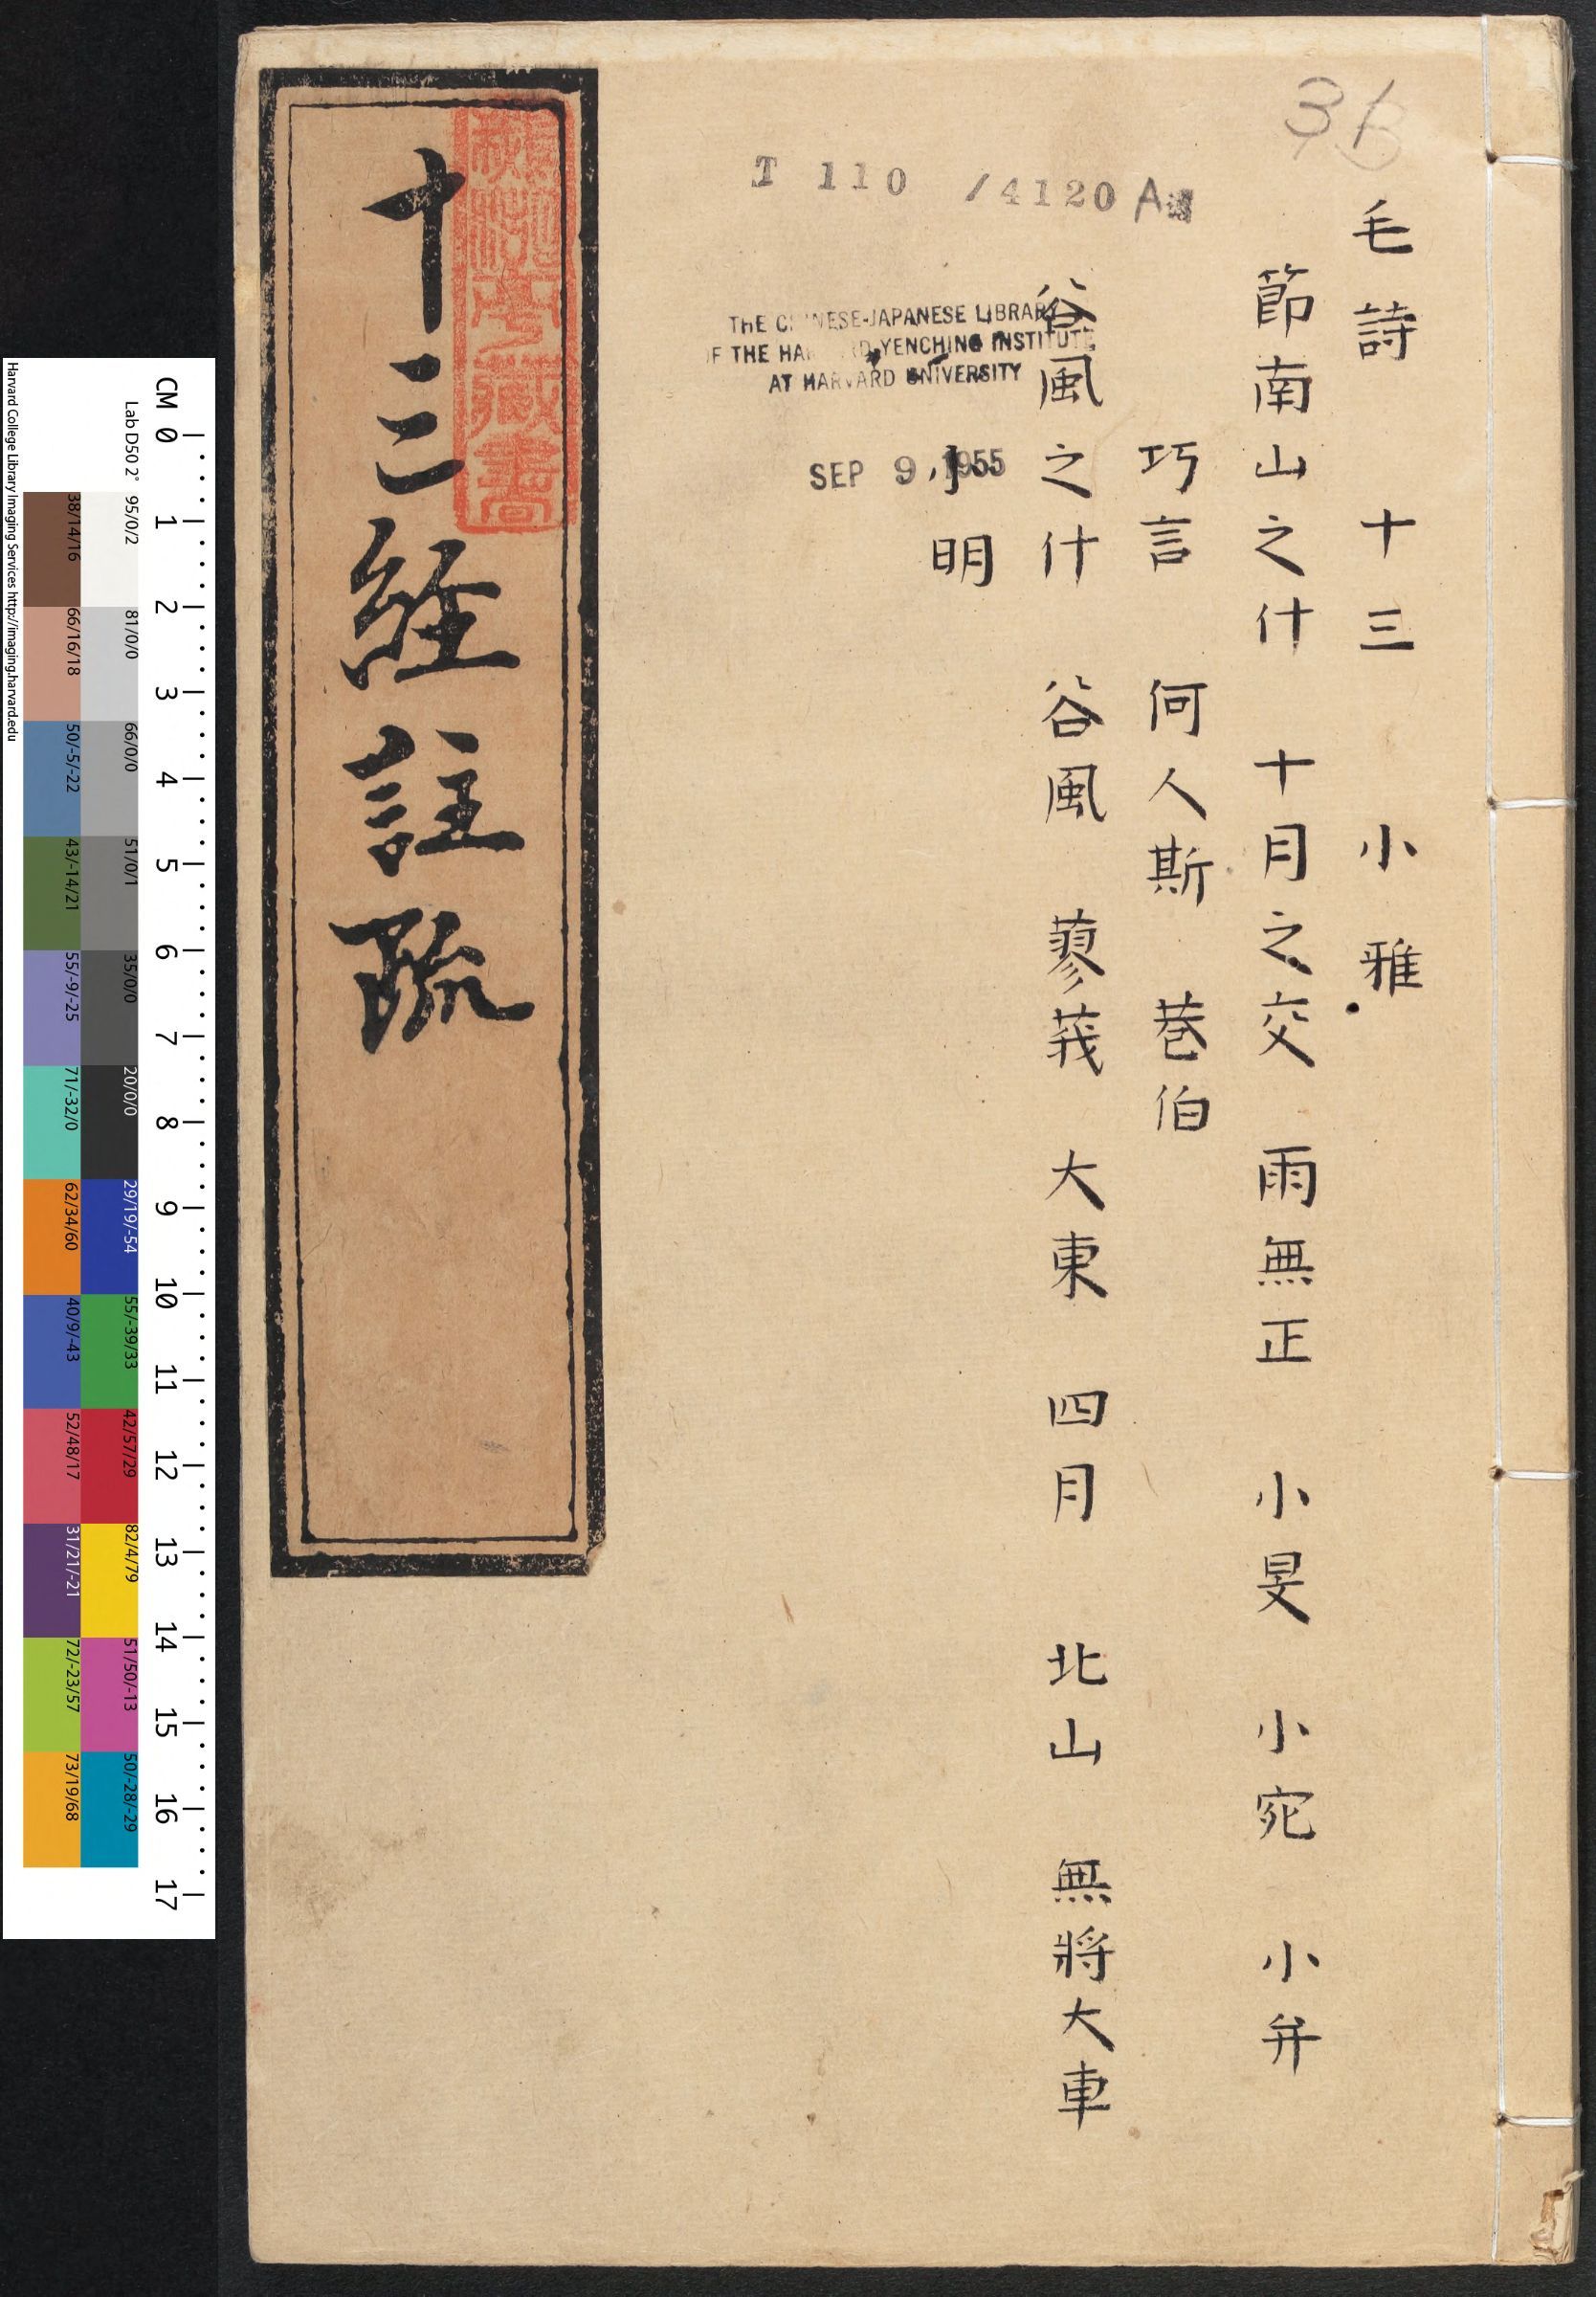 毛詩 十三 小雅
節南山之什 十月之交 雨無正 小旻 小宛 小弁
巧言 何人斯 巷伯
谷風之什 谷風 蓼莪 大東 四月 北山 無將大車
小明
十三經註疏
T 110 /4120 A
THE CHINESE-JAPANESE LIBRARY
OF THE HARVARD-YENCHING INSTITUTE
AT HARVARD UNIVERSITY
SEP 9 1955
藏書
CM 0 1 2 3 4 5 6 7 8 9 10 11 12 13 14 15 16 17
Lab D50 2° 95/0/2 81/0/0 66/0/0 51/0/1 35/0/0 20/0/0 29/19/-54 55/-39/33 42/57/29 82/4/79 51/50/-13 50/-28/-29
38/14/16 66/16/18 50/-5/-22 43/-14/21 55/-9/-25 71/-32/0 62/34/60 40/9/-43 52/48/17 31/21/-21 72/-23/57 73/19/68
Harvard College Library Imaging Services http://imaging.harvard.edu